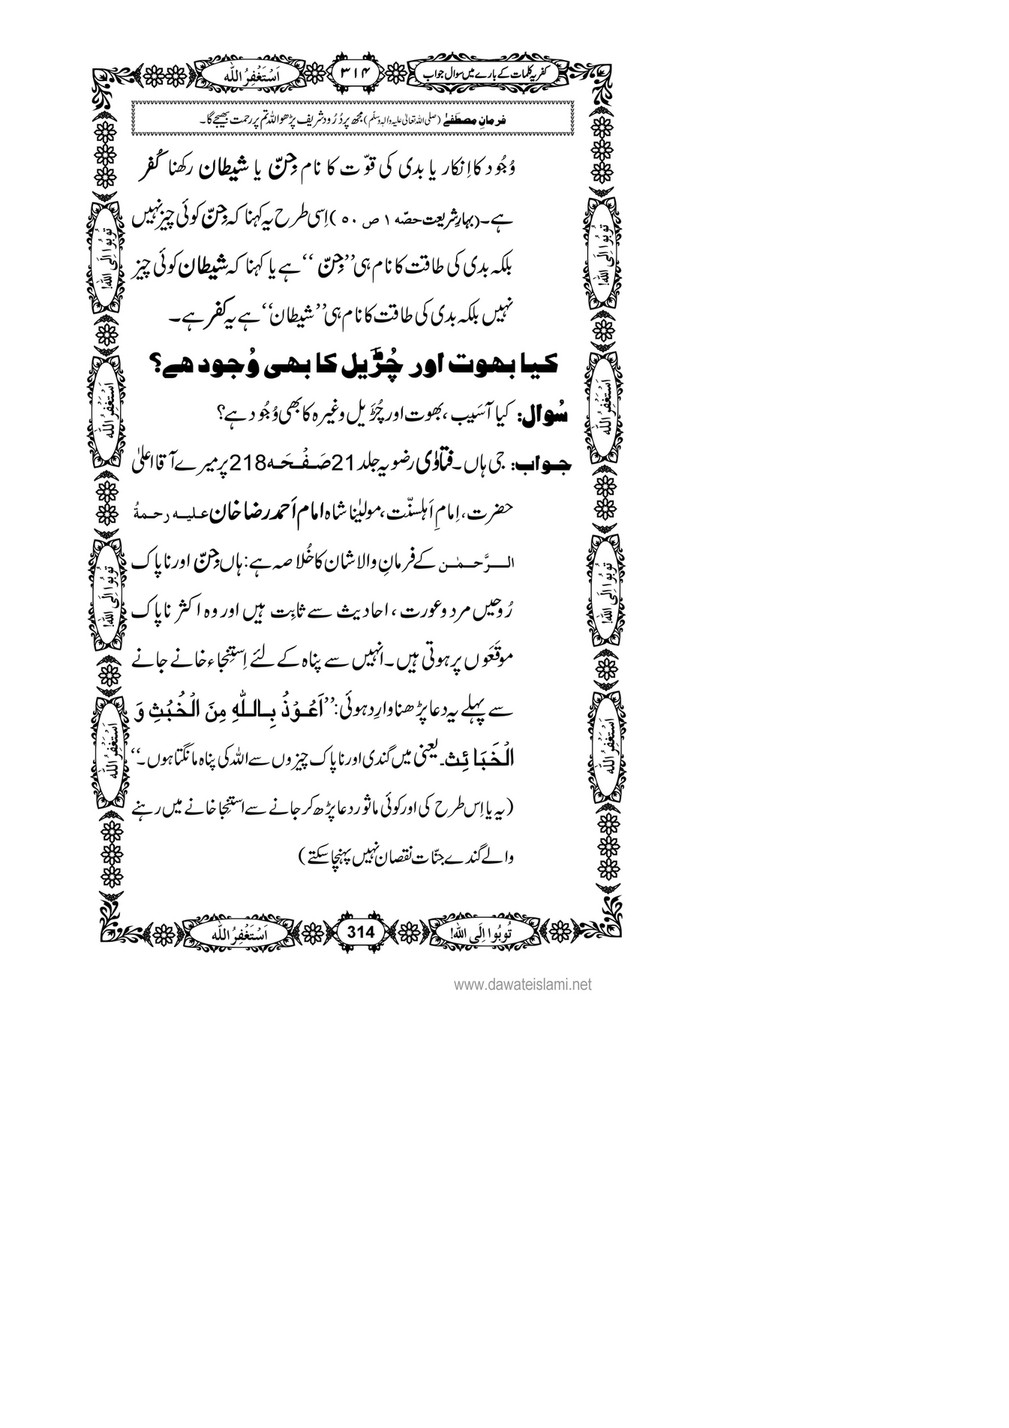 کفریہ کلمات کے بارے میں سوال جواب
۳۱۴
اَسْتَغْفِرُ اللہ
فرمانِ مصطَفٰے (صلی اللہ تعالیٰ علیہ واٰلہٖ وسلّم) مجھ پر دُرُود شریف پڑھو اللہ تم پر رحمت بھیجے گا۔
وُجُود کا اِنکار یا بدی کی قوّت کا نام جِنّ یا شیطان رکھنا کُفر
ہے۔ (بہارِ شریعت حصّہ ۱ ص ۵۰) اِسی طرح یہ کہنا کہ جِنّ کوئی چیز نہیں
بلکہ بدی کی طاقت کا نام ہی ’’جِنّ‘‘ ہے یا کہنا کہ شیطان کوئی چیز
نہیں بلکہ بدی کی طاقت کا نام ہی ’’شیطان‘‘ ہے یہ کفر ہے۔
کیا بھوت اور چُڑَیل کا بھی وُجود ھے؟
سُوال: کیا آسَیب، بھوت اور چُڑَیل وغیرہ کا بھی وُجُود ہے؟
جواب: جی ہاں۔ فتاوٰی رضویہ جلد 21 صَفْحَہ 218 پر میرے آقا اعلیٰ
حضرت، اِمامِ اَہلسنّت، مولیٰنا شاہ امام اَحمد رضا خان علیہ رحمۃُ
الرَّحمٰن کے فرمانِ والا شان کا خُلاصہ ہے: ہاں جِنّ اور ناپاک
رُوحیں مرد و عورت، احادیث سے ثابِت ہیں اور وہ اکثر ناپاک
موقَعوں پر ہوتی ہیں۔ انہیں سے پناہ کے لئے اِستِنجاء خانے جانے
سے پہلے یہ دعا پڑھنا وارِد ہوئی: ’’اَعُوْذُ بِاللّٰہِ مِنَ الْخُبُثِ وَ
الْخَبَائِث۔ یعنی میں گندی اور ناپاک چیزوں سے اللہ کی پناہ مانگتا ہوں۔‘‘
(یہ یا اِس طرح کی اور کوئی ماثور دعا پڑھ کر جانے سے استنجا خانے میں رہنے
والے گندے جنّات نقصان نہیں پہنچا سکتے)
تُوبُوا اِلَی اللہ!
اَسْتَغْفِرُ اللہ
تُوبُوا اِلَی اللہ!
اَسْتَغْفِرُ اللہ
تُوبُوا اِلَی اللہ!
اَسْتَغْفِرُ اللہ
تُوبُوا اِلَی اللہ!
اَسْتَغْفِرُ اللہ
تُوبُوا اِلَی اللہ!
314
اَسْتَغْفِرُ اللہ
www.dawateislami.net